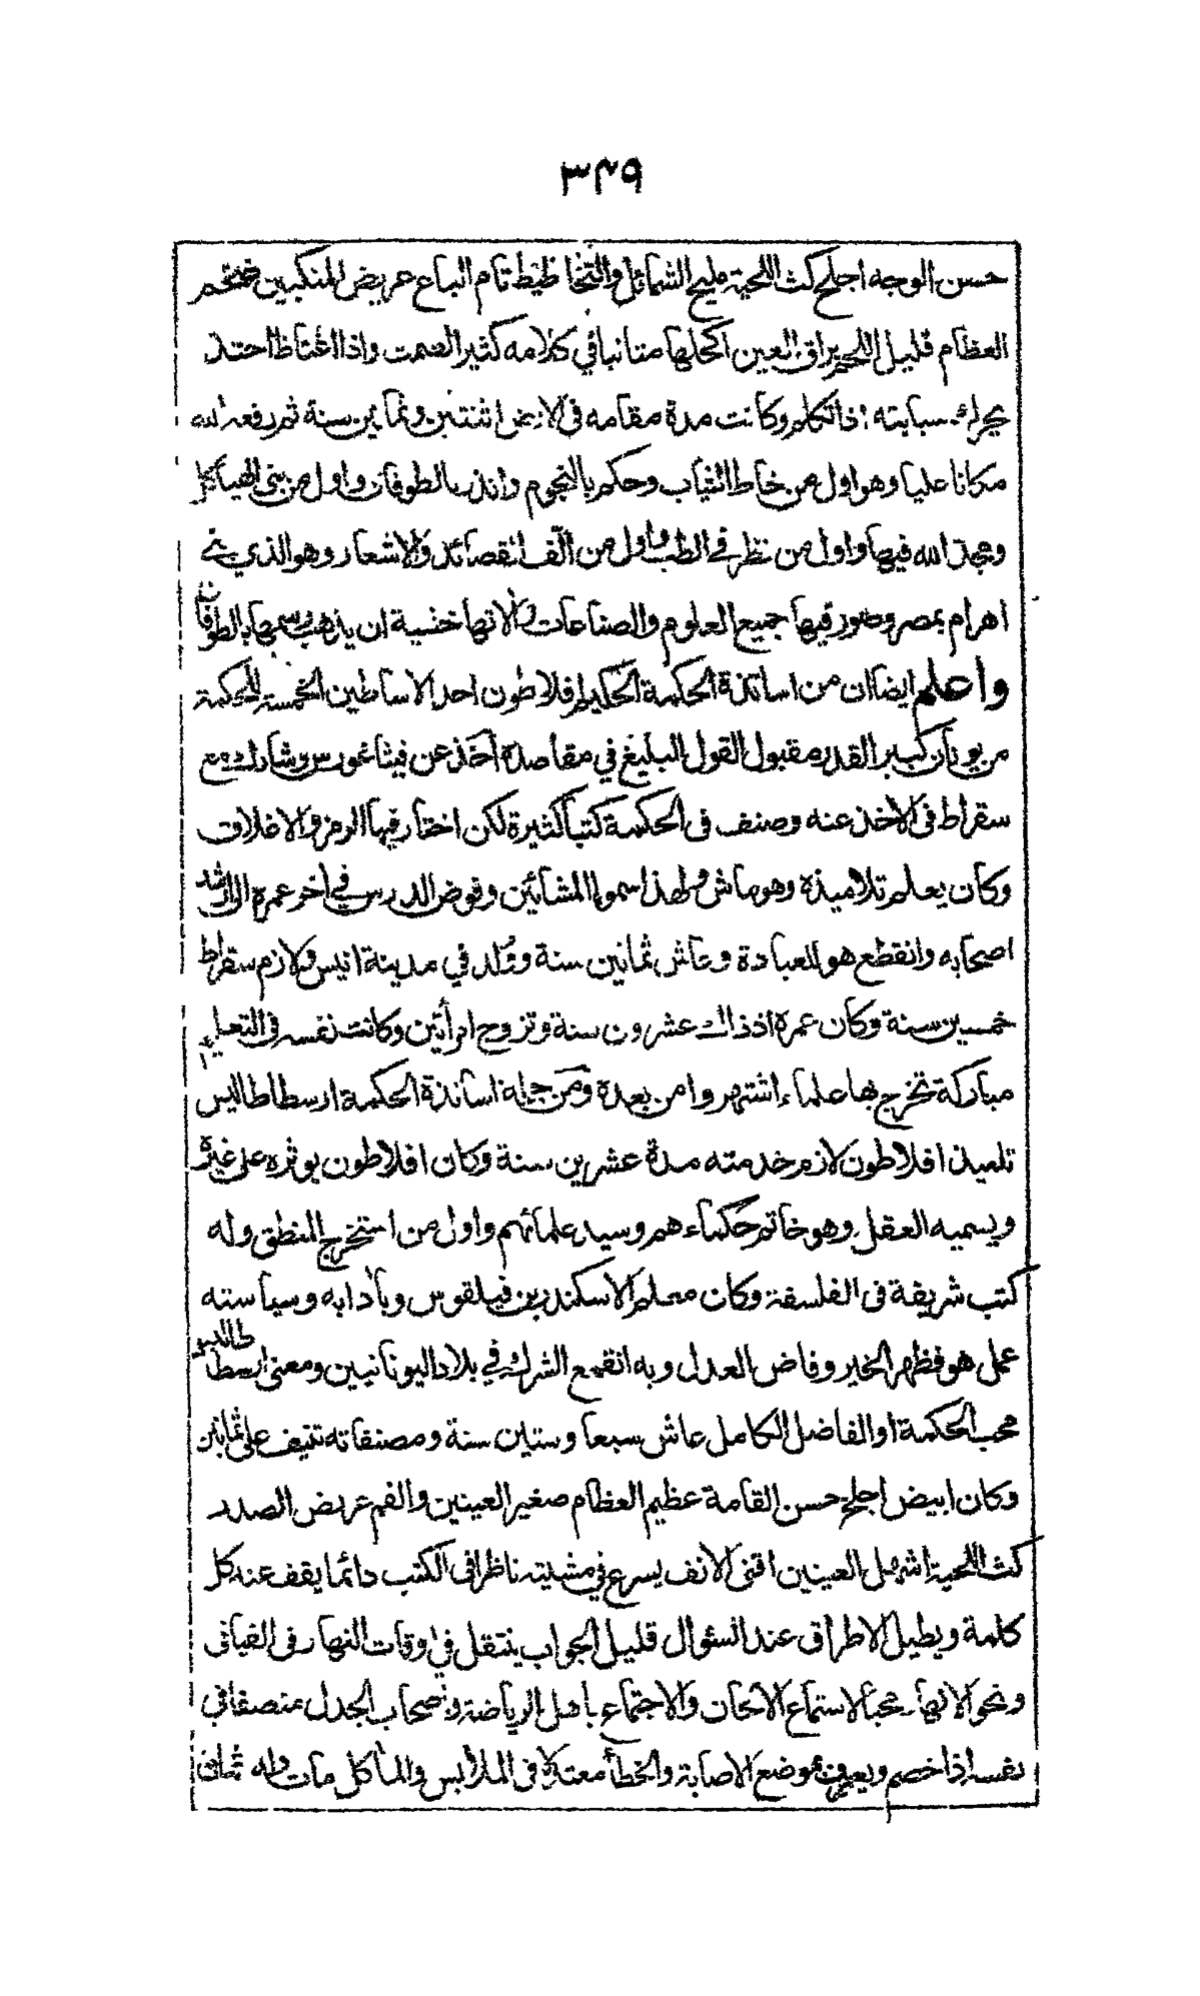 ٣٤٩
حسن الوجه اجلح كث اللحية مليح الشمائل والتخاطيط تام الباع عريض المنكبين ضخم
العظام قليل اللحم براق العين اكحلها متانيا في كلامه كثير الصمت واذا اغتاظ احتد
يحرك سبابته اذا تكلم وكانت مدة مقامه في الارض اثنتين وثمانين سنة ثم رفعه الله
مكانا عليا وهو اول من خاط الثياب وحكم بالنجوم وانذر بالطوفان واول من بنى الهياكل
ومجد الله فيها واول من نظر في الطب واول من الّف القصائد والاشعار وهو الذي بنى
اهرام بمصر وصور فيها جميع العلوم والصناعات والاتها خشية ان يذهب رسمها بالطوفان
واعلم ايضا ان من اساتذة الحكمة الحكيم افلاطون احد الاساطين الخمسة للحكمة
من يونان كبير القدر مقبول القول البليغ في مقاصده اخذ عن فيثاغورس وشارك مع
سقراط في الاخذ عنه وصنف في الحكمة كتبا كثيرة لكن اختار فيها الرمز والاغلاق
وكان يعلم تلاميذه وهو ماش ولهذا سموا المشائين وفوض الدرس في اخر عمره الى ارشد
اصحابه وانقطع هو للعبادة وعاش ثمانين سنة وولد في مدينة اتيس ولازم سقراط
خمسين سنة وكان عمره اذ ذاك عشرون سنة وتزوج امرأتين وكانت نفسه في التعليم
مباركة تخرج بها علماء اشتهروا من بعده ومن جملة اساتذة الحكمة ارسطاطاليس
تلميذ افلاطون لازم خدمته مدة عشرين سنة وكان افلاطون يوثره على غيره
ويسميه العقل وهو خاتم حكماءهم وسيد علمائهم واول من استخرج المنطق وله
كتب شريفة في الفلسفة وكان معلم الاسكندر بن فيلقوس وبآدابه وسياسته
عمل هو فظهر الخير وفاض العدل وبه انقمع الشرك في بلاد اليونانيين ومعنى ارسطاطاليس
محب الحكمة او الفاضل الكامل عاش سبعا وستين سنة ومصنفاته تنيف على ثمانين
وكان ابيض اجلح حسن القامة عظيم العظام صغير العينين والفم عريض الصدر
كث اللحية اشهل العينين اقنى الانف يسرع في مشيته ناظرا في الكتب دائما يقف عند كل
كلمة ويطيل الاطراق عند السئوال قليل الجواب ينتقل في اوقات النهار في الفيافى
ونحو الانهار محبا لاستماع الالحان والاجتماع باهل الرياضة واصحاب الجدل منصفا في
نفسه اذا خصم ويعرف بموضع الاصابة والخطأ معتدلا في الملابس والمآكل مات وله ثمان